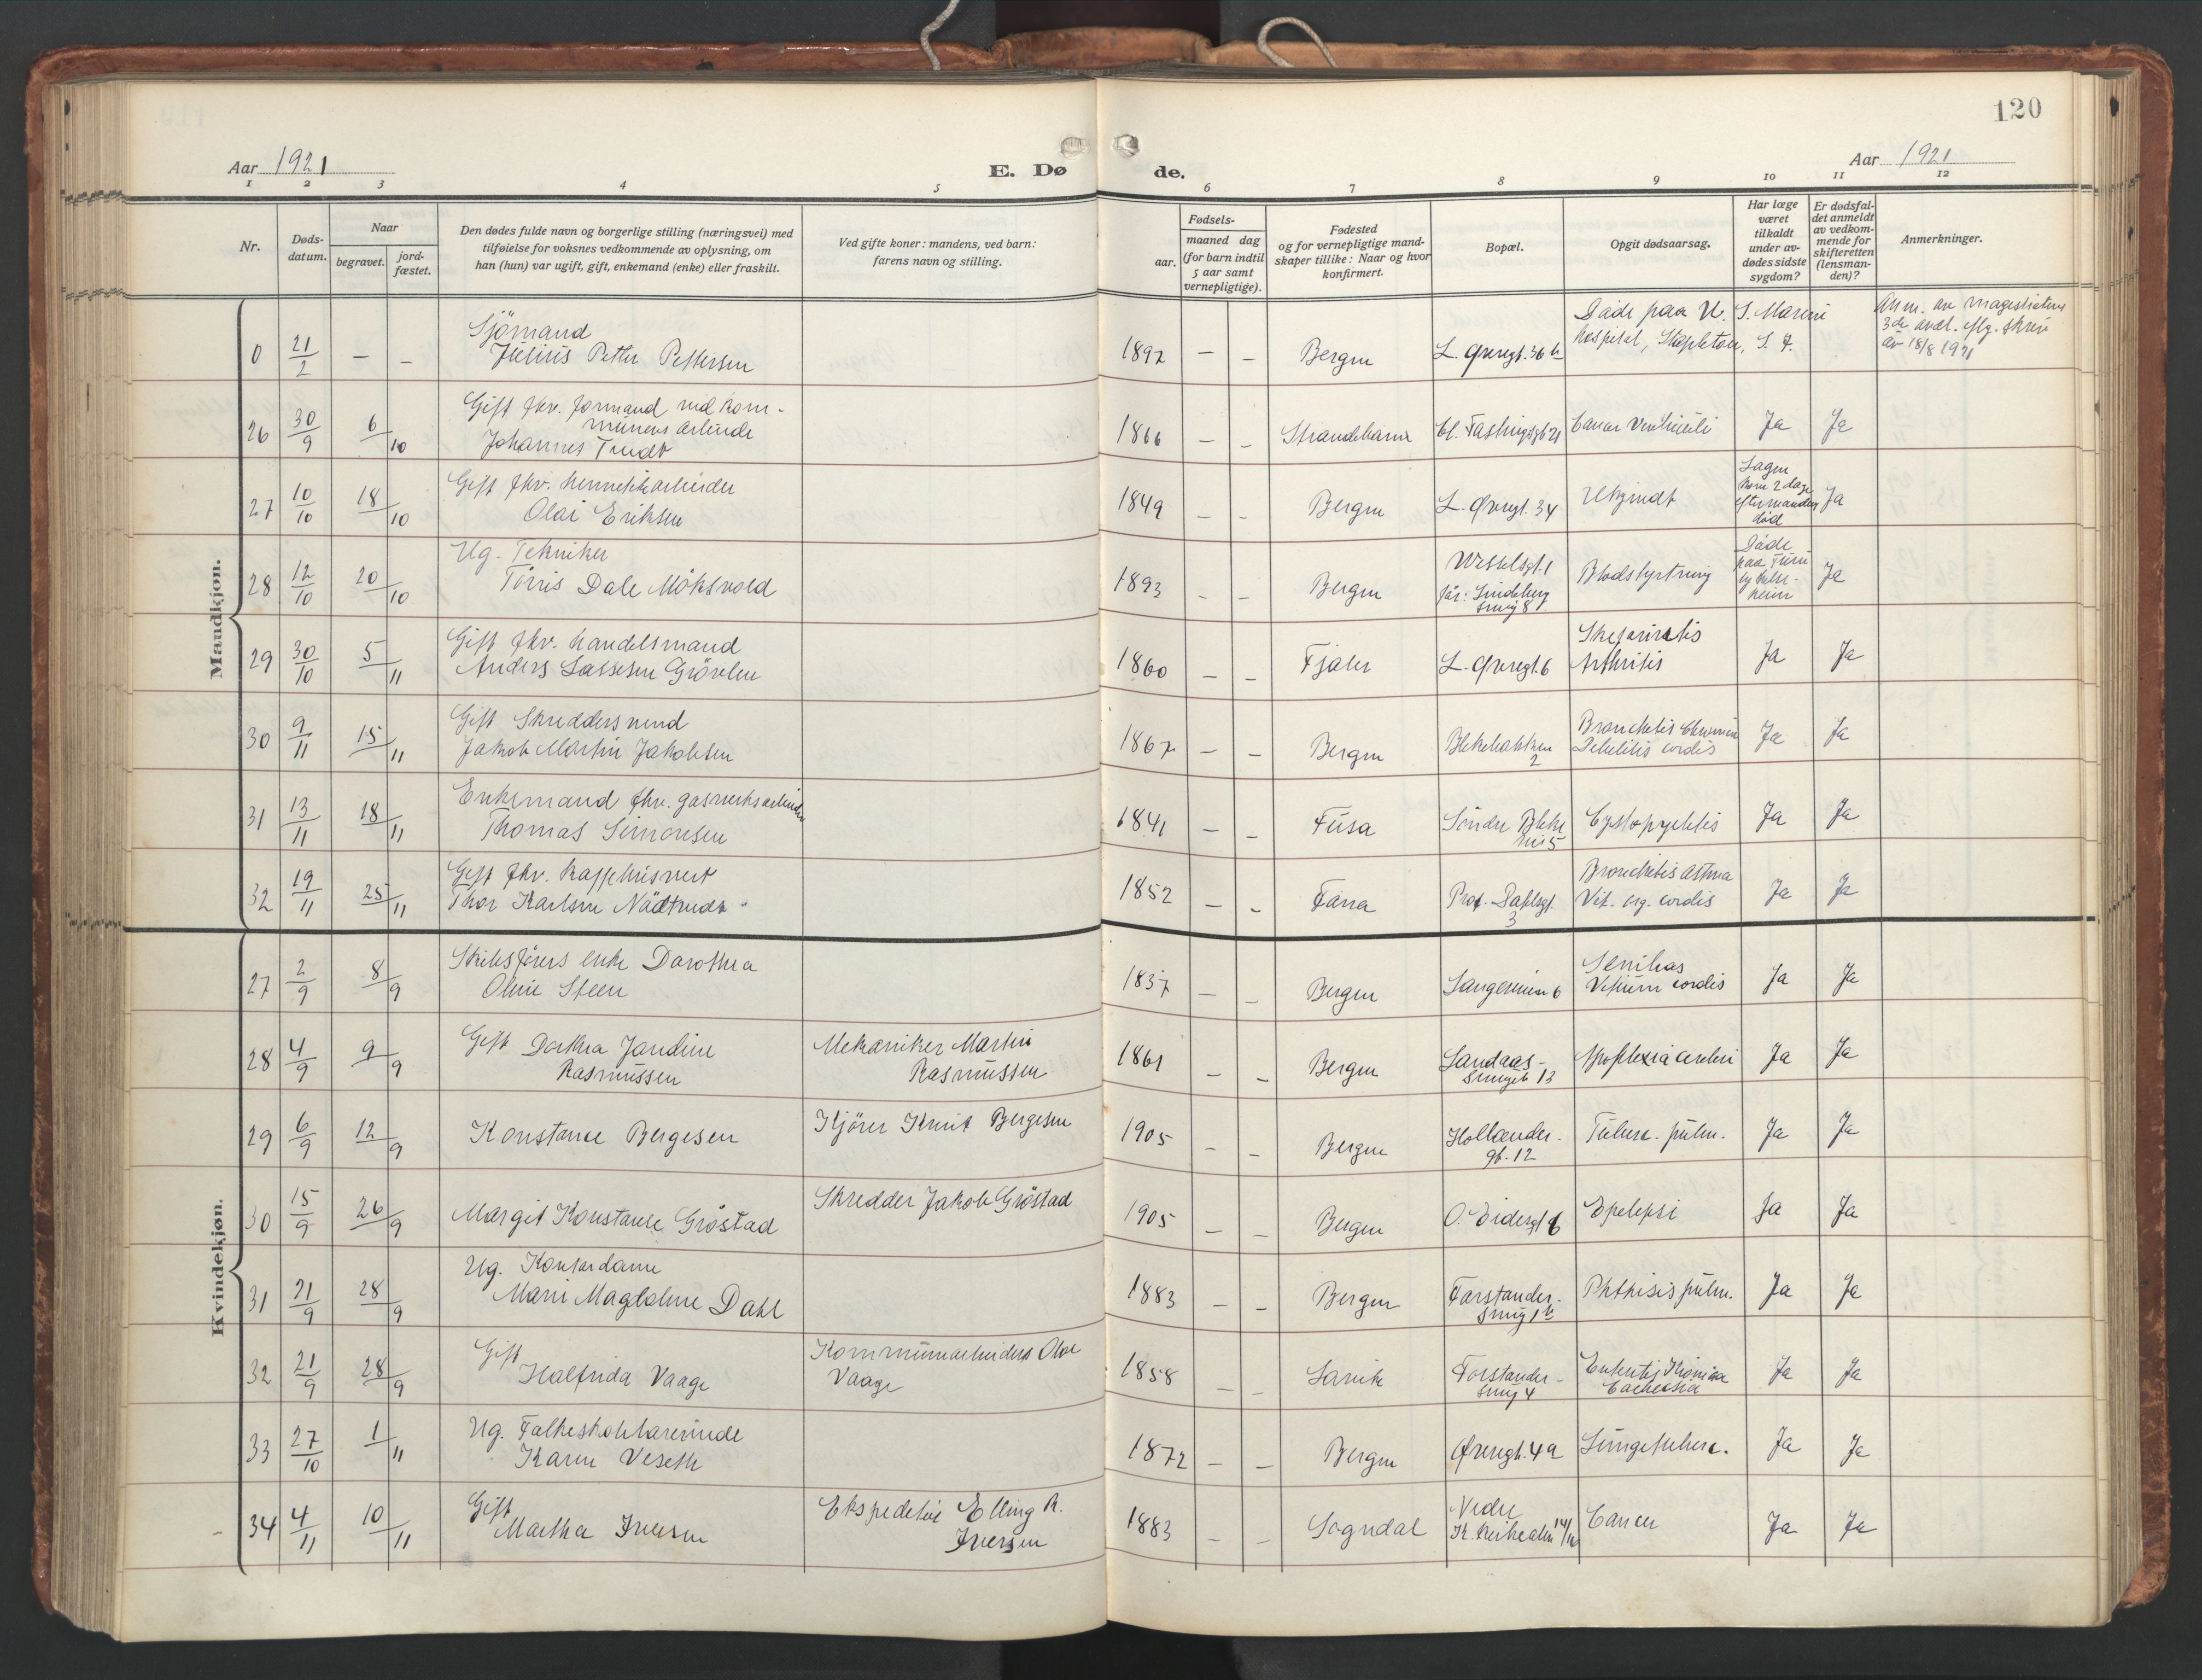 120
Aar 1921
E. Dø
de.
Aar 1921
1 2 3 4 5 6 7 8 9 10 11 12
Nr.
Døds-
datum.
Naar
begravet.
jord-
fæstet.
Den dødes fulde navn og borgerlige stilling (næringsvei) med
tilføielse for voksnes vedkommende av oplysning, om
han (hun) var ugift, gift, enkemand (enke) eller fraskilt.
Ved gifte koner: mandens, ved barn:
farens navn og stilling.
Fødsels-
aar.
maaned dag
(for barn indtil
5 aar samt
vernepligtige).
Fødested
og for vernepligtige mand-
skaper tillike: Naar og hvor
konfirmert.
Bopæl.
Opgit dødsaarsag.
Har læge
været
tilkaldt
under av-
dødes sidste
sygdom?
Er dødsfal-
det anmeldt
av vedkom-
mende for
skifteretten
(lensman-
den)?
Anmerkninger.
Mandkjøn.
0 21/2 – –
Sjömand
Julius Petter Pettersen
1897 – – Bergen L. Øvregt. 36b
Døde paa U. S. Marine
hospital, Stapleton, S. I.
Anm. av magistratens
3de avdl. flg. skriv
av 18/8 1921
26 30/9 6/10
Gift fhv. formand ved kom-
munens arbeide
Johannes Trudt
1866 – – Strandebarm Cl. Fastingsgt 21 Cancer Ventriculi Ja Ja
27 10/10 18/10
Gift fhv.
Olai Eriksen
1849 – – Bergen L. Øvregt. 34 Ukjendt
Lægen
kom 2 dage
efter manden
død
Ja
28 12/10 20/10
Ug. Tekniker
Törris Dale Möksvold
1893 – – Bergen
Wesselsgt. 1
far: Lindeberg
smug 8
Blodstyrtning
Døde
paa Turu
sykehe-
heim
Ja
29 30/10 5/11
Gift fhv. handelsmand
Anders Lassesen Grövlen
1860 – – Fjaler L. Øvregt. 6
Arthritis
Ja Ja
30 9/11 15/11
Gift Skreddersvend
Jakob Martin Jakobsen
1867 – – Bergen
Blekebakken
2
Bronchitis Chronica
Debilitis cordis
Ja Ja
31 13/11 18/11
Enkemand fhv. gasverksarbeider
Thomas Simonsen
1841 – – Fusa
Söndre Bleke
5
Cystopyelitis Ja Ja
32 19/11 25/11
Gift fhv. Kaffehusvert
Thor Karlsen Nädtvedt
1852 – – Fana
Prof. Dahlsgt.
3
Bronchitis Astma
Vit. org. cordis
Ja Ja
Kvindekjøn.
27 2/9 8/9
Skibsförers enke Dorothea
Oline Steen
1837 – – Bergen 6
Senilitas
Vitium cordis
Ja Ja
28 4/9 9/9
Gift Dorthea Jandine
Rasmussen
Mekaniker Martin
Rasmussen
1861 – – Bergen
Landaas-
smuget 13
Apoplexia cerebri Ja Ja
29 6/9 12/9
Konstance Bergesen
Kjörer Knut Bergesen
1905 – – Bergen
Hollænder-
gt. 12
Tuberc. pulm. Ja Ja
30 15/9 26/9
Margit Konstanse Gröstad
Skredder Jakob Gröstad
1905 – – Bergen O. Eidersgt 6 Epelepsi Ja Ja
31 21/9 28/9
Ug. Kontordame
Marie Magdalene Dahl
1883 – – Bergen
Forstander-
smug 1b
Phthisis pulm. Ja Ja
32 21/9 28/9
Gift
Halfrida Vaage
Kommunearbeider Olve
Vaage
1858 – –
Forstander-
smug 4
Enteritis Kronica
Cachexia
Ja Ja
33 27/10 1/11
Ug. Folkeskolelærerinde
Karen Veseth
1872 – – Bergen Øvregt. 4a Lungetuberc. Ja Ja
34 4/11 10/11
Gift
Martha Iversen
Ekspeditör Elling R.
Iversen
1883 – – Sogndal
Nedre
K. Kirkealm 14/16
Cancer Ja Ja